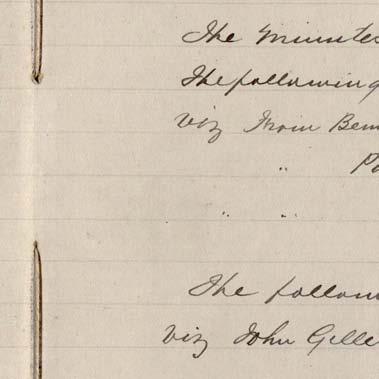 The Minutes
The following
viz From Ben
" P
" "
The follow
viz John Gille